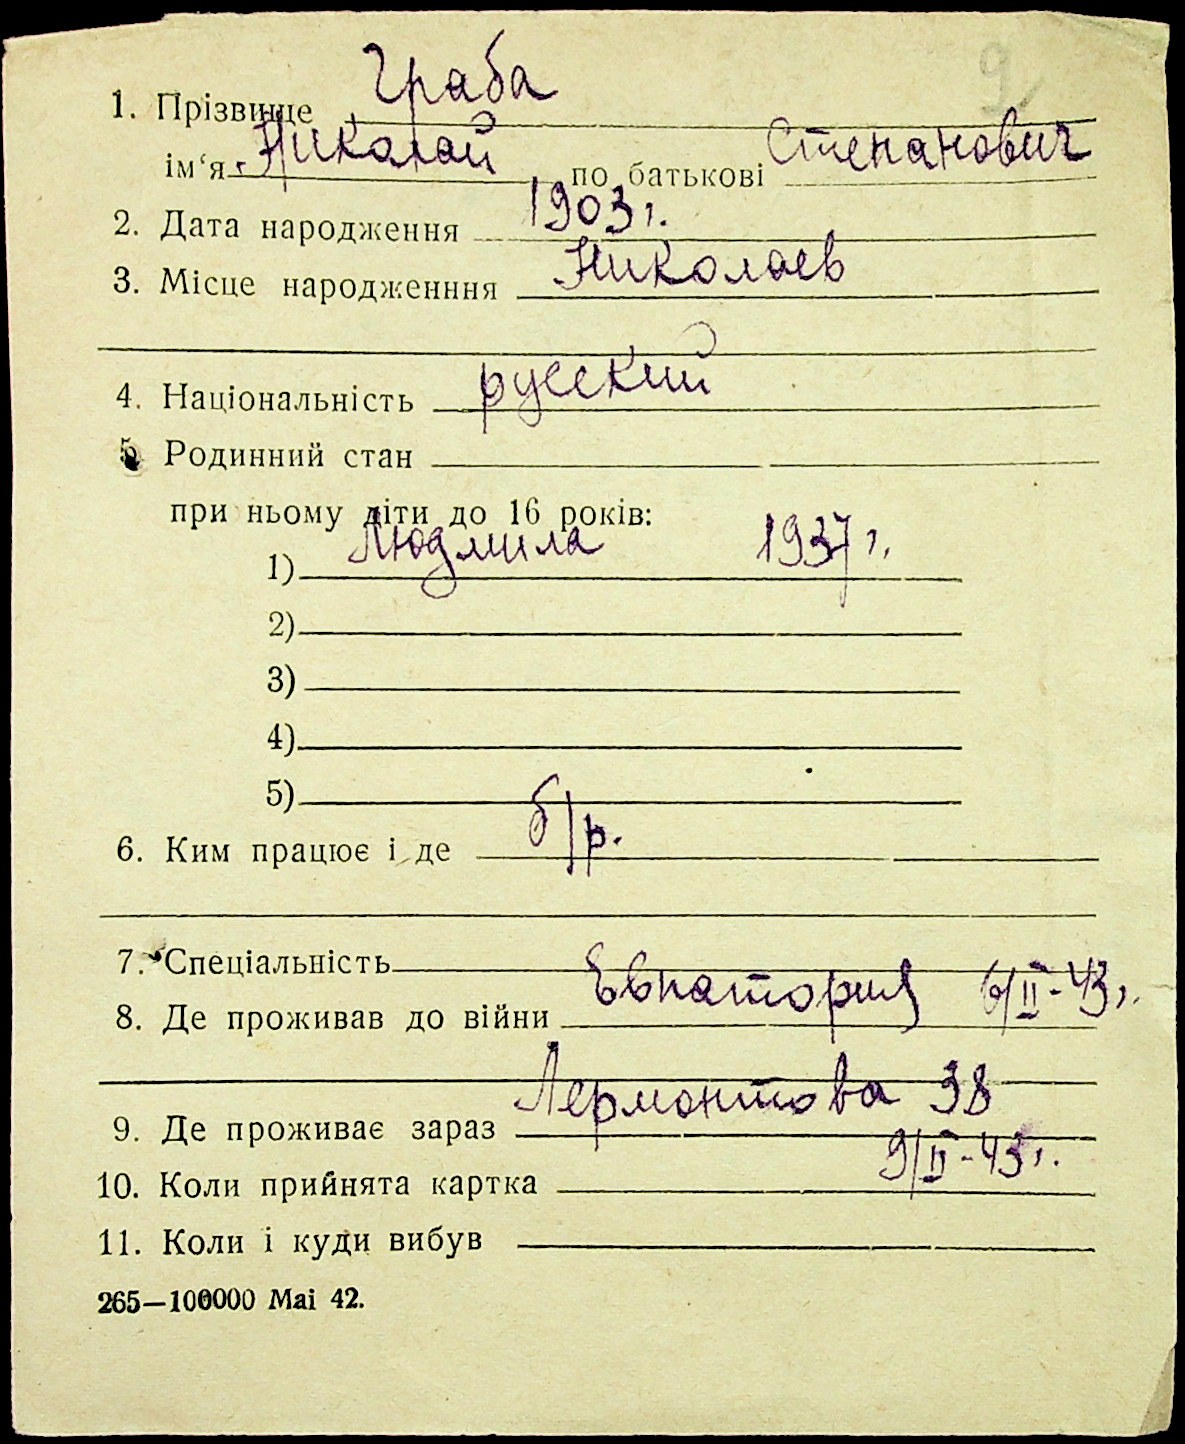 9
1. Прізвище Граба
ім‘я Николай по батькові Степанович
2. Дата народження 1903 г.
3. Місце народженння Николаев
4. Національність русский
5. Родинний стан
при ньому діти до 16 років:
1) Людмила 1937 г.
2)
3)
4)
5)
6. Ким працює і де б/р.
7. Спеціальність
8. Де проживав до війни Евпатория 6/II-43 г.
9. Де проживає зараз Лермонтова 38
10. Коли прийнята картка 9/II-43 г.
11. Коли і куди вибув
265—100000 Mai 42.